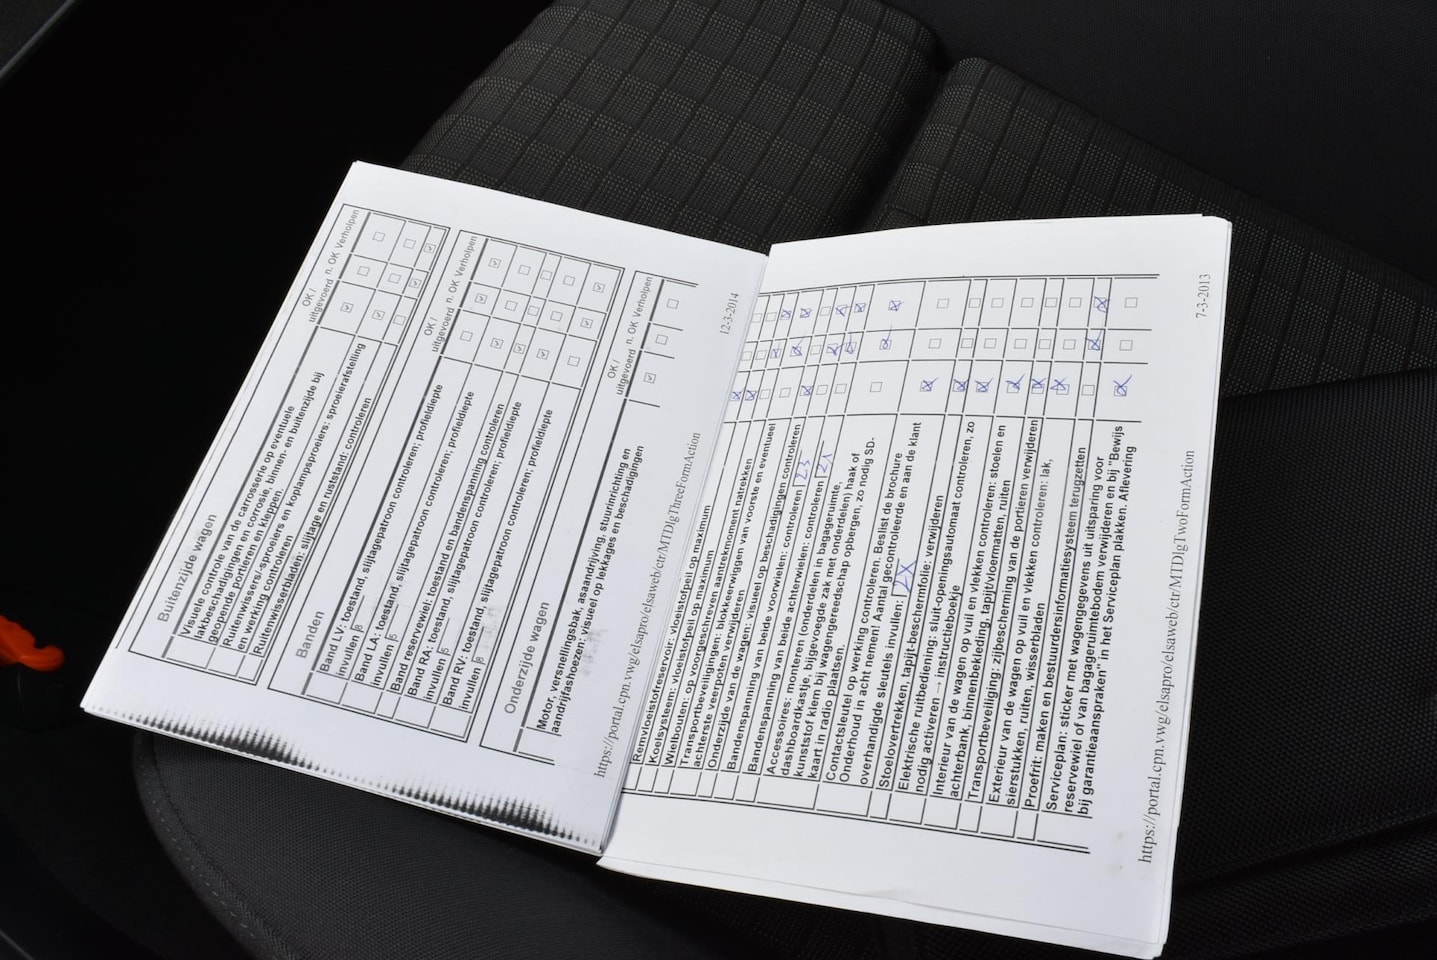 Buitenzijde wagen
OK / uitgevoerd n. OK Verholpen
Visuele controle van de carrosserie op eventuele
lakbeschadigingen en corrosie, binnen- en buitenzijde bij
geopende portieren en kleppen.
Ruitenwissers/-sproeiers en koplampsproeiers: sproeierafstelling
en werking controleren
Ruitenwisserbladen: slijtage en ruststand: controleren
Banden
OK / uitgevoerd n. OK Verholpen
Band LV: toestand, slijtagepatroon controleren; profieldiepte
invullen
Band LA: toestand, slijtagepatroon controleren; profieldiepte
invullen
Band reservewiel: toestand en bandenspanning controleren
Band RA: toestand, slijtagepatroon controleren; profieldiepte
invullen
Band RV: toestand, slijtagepatroon controleren; profieldiepte
invullen
Onderzijde wagen
OK / uitgevoerd n. OK Verholpen
Motor, versnellingsbak, asaandrijving, stuurinrichting en
aandrijfashoezen: visueel op lekkages en beschadigingen
https://portal.cpn.vwg/elsapro/elsaweb/ctr/MTDlgThreeFormAction
12-3-2014
Remvloeistofreservoir: vloeistofpeil op maximum
Koelsysteem: vloeistofpeil op maximum
Wielbouten: op voorgeschreven aantrekmoment natrekken
Transportbeveiligingen: blokkeerwiggen van voorste en eventueel
achterste veerpoten verwijderen
Onderzijde van de wagen: visueel op beschadigingen controleren
Bandenspanning van beide voorwielen: controleren 2,3
Bandenspanning van beide achterwielen: controleren 2,1
Accessoires: monteren (onderdelen in bagageruimte,
dashboardkastje, bijgevoegde zak met onderdelen) haak of
kunststof klem bij wagengereedschap opbergen, zo nodig SD-
kaart in radio plaatsen.
Contactsleutel op werking controleren. Beslist de brochure
Onderhoud in acht nemen! Aantal gecontroleerde en aan de klant
overhandigde sleutels invullen: 2X
Stoelovertrekken, tapijt-beschermfolie: verwijderen
Elektrische ruitbediening: sluit-openingsautomaat controleren, zo
nodig activeren → instructieboekje
Interieur van de wagen op vuil en vlekken controleren: stoelen en
achterbank, binnenbekleding, tapijt/vloermatten, ruiten
Transportbeveiliging: zijbescherming van de portieren verwijderen
Exterieur van de wagen op vuil en vlekken controleren: lak,
sierstukken, ruiten, wisserbladen
Proefrit: maken en bestuurdersinformatiesysteem terugzetten
Serviceplan: sticker met wagengegevens uit uitsparing voor
reservewiel of van bagageruimtebodem verwijderen en bij "Bewijs
bij garantieaanspraken" in het Serviceplan plakken. Aflevering
https://portal.cpn.vwg/elsapro/elsaweb/ctr/MTDlgTwoFormAction
7-3-2013